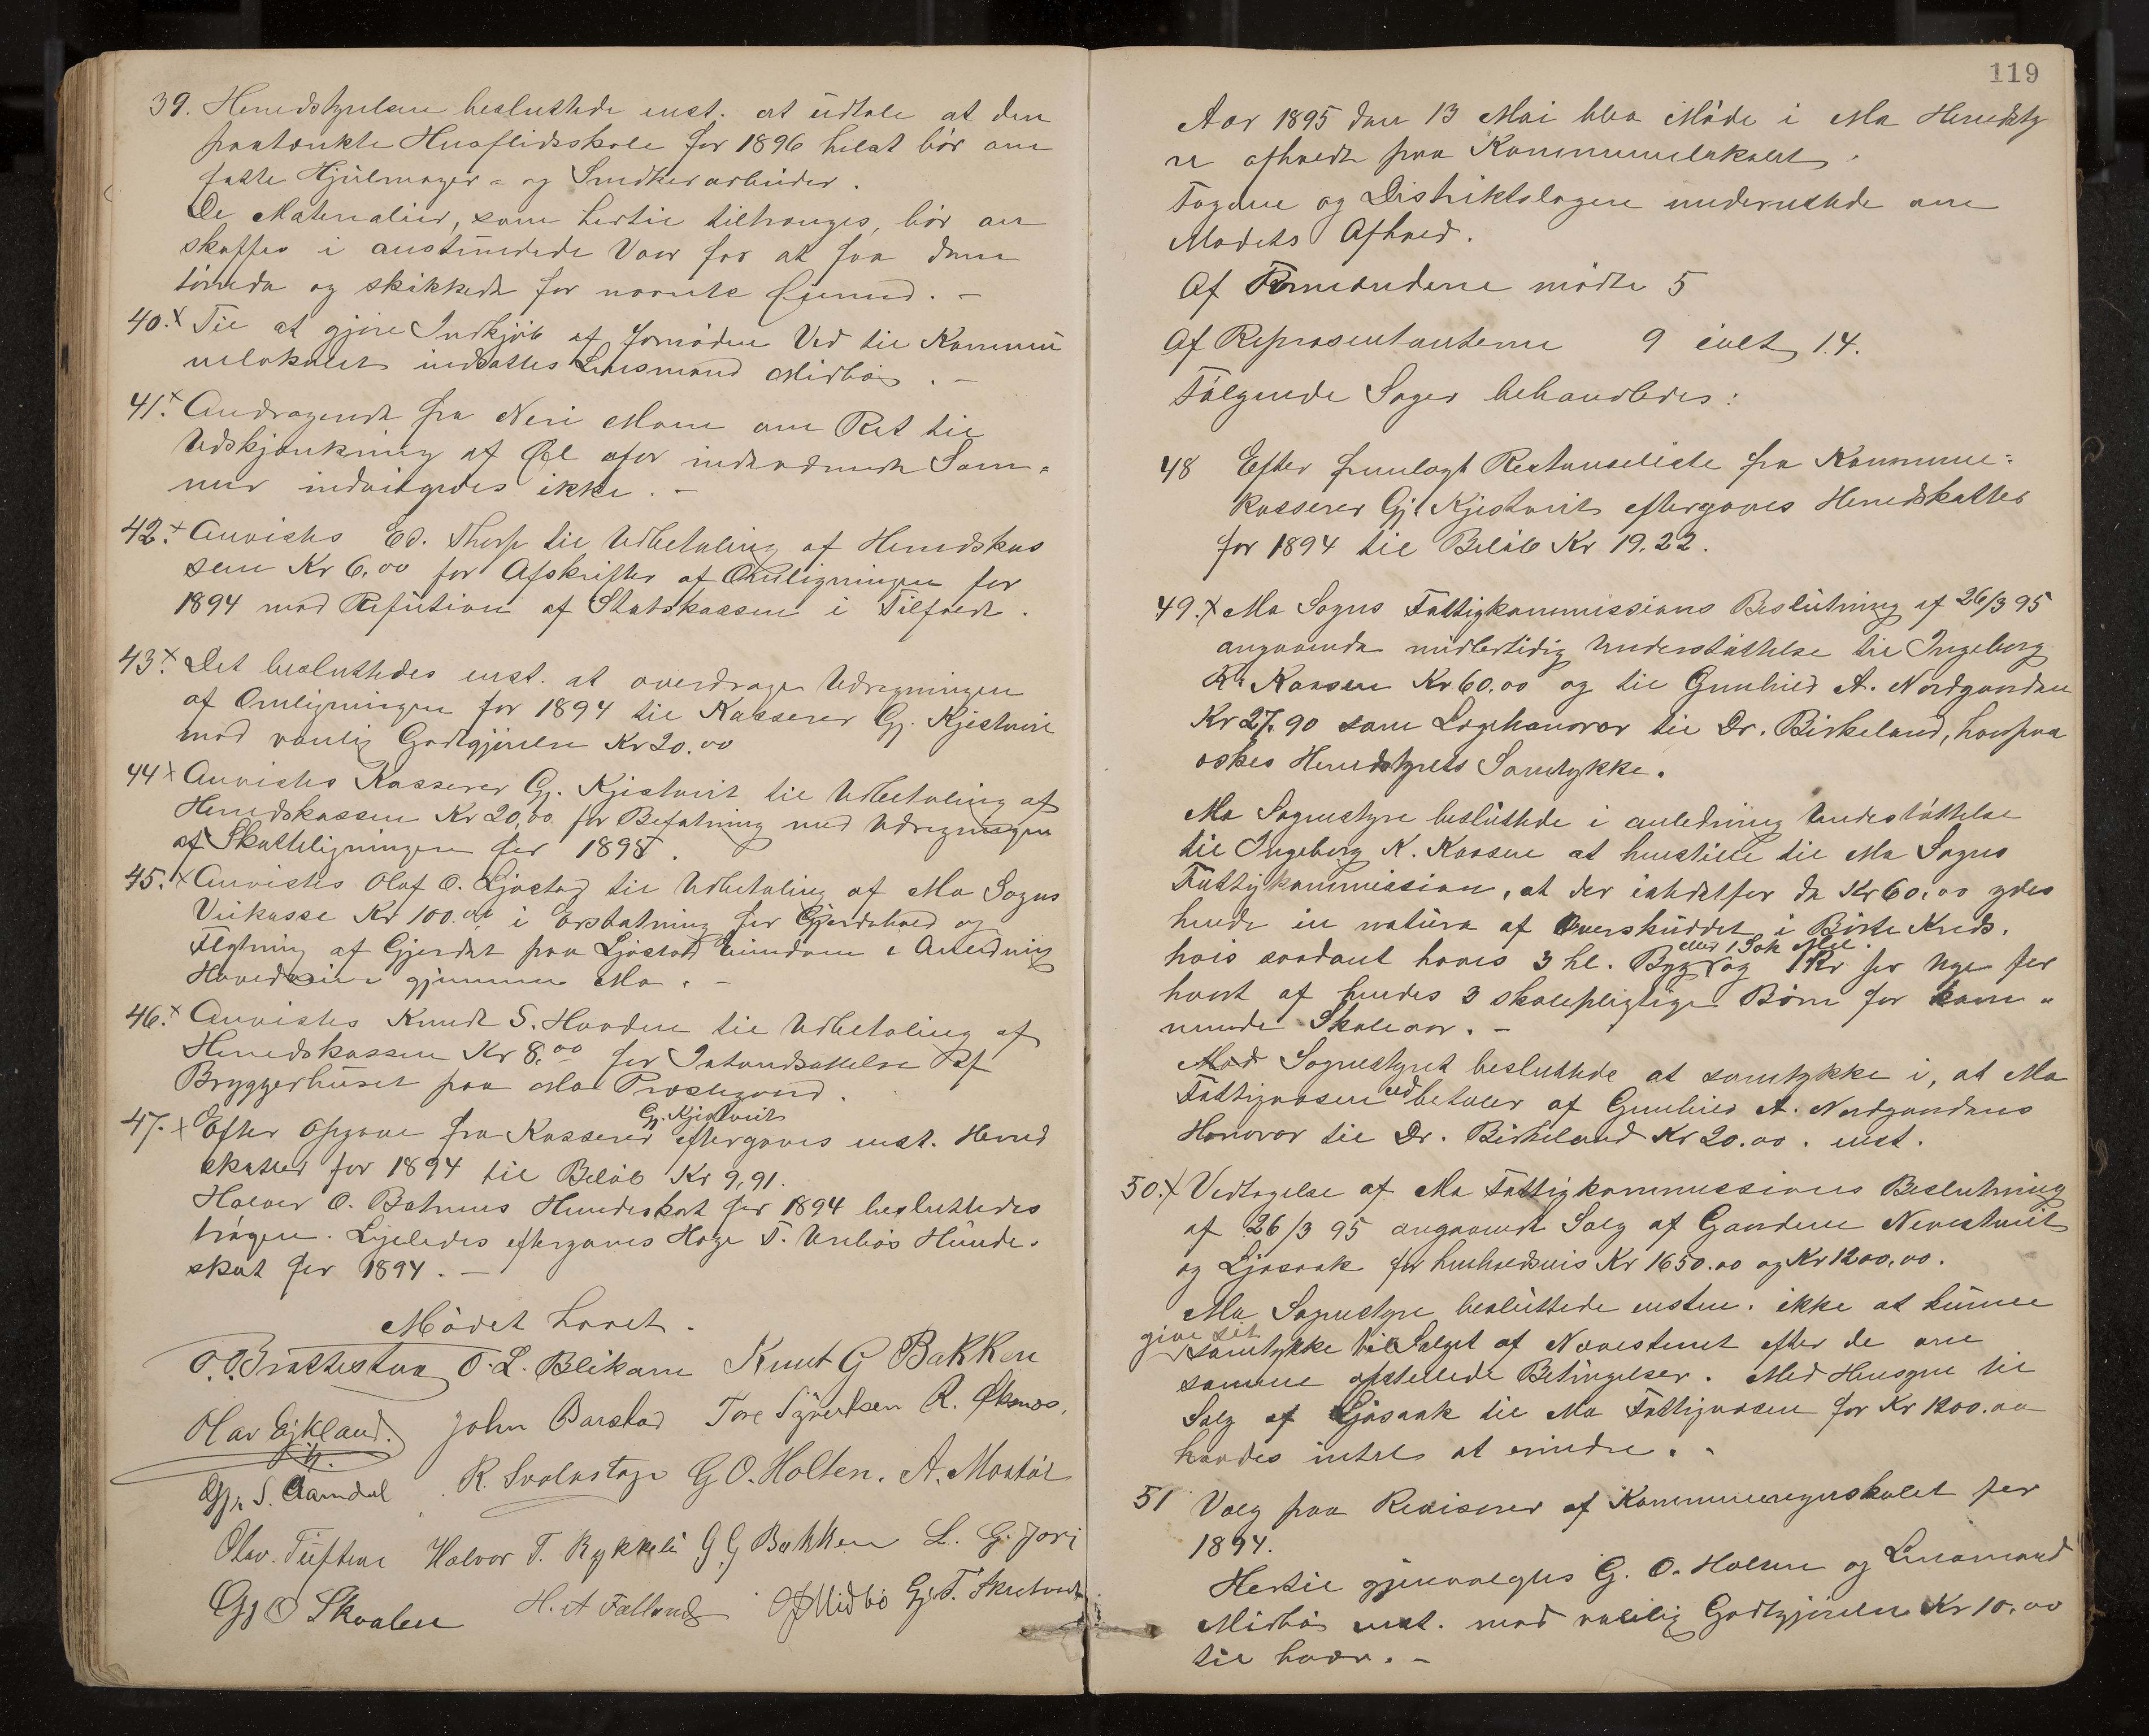 39. Herredstyrelsen besluttede enst. at udtale at den
paatænkte Husflidsskole for 1896 helst bör om
fatte Hjulmager- og Snedkerarbeider.
De Materialier, som hertil tiltrænges, bör an
skaffes i
og skikkede for
40. x Til at gjöre Indkjöb af fornöden Ved til Kommu
nelokalet indsattes Lensmand Midbö. -
41. x Andragende fra Neri Moen om Ret til
Udskjænkning af Öl
mer indvilgedes ikke. -
42. x Anvistes Ed. Thorp til Udbetaling af Herredskas
sen Kr 6,00 for Afskrifter af Omligningen for
1894 mod Refution af Statskassen i Tilfælde.
43. x Det besluttedes enst. at overdrage Udregningen
af Omligningen for 1894 til Kasserer Gj. Kjistveit
mod vanlig Godtgjörelse Kr 20.00
44 x Anvistes Kasserer Gj. Kjistveit til Udbetaling af
Herredskassen Kr 20,00 for Befatning med Udregningen
af Skatteligningen for 1895.
45. x Anvistes Olaf O. Ljøstad til Udbetaling af Mo Sogns
Veikasse Kr 100.00 i Erstatning for Gjerdehold og
Flytning af Gjerdet paa Ljøstad Eiendom i Anledning
Hovedveien gjennem Mo. -
46. x Anvistes Knudt S. Hovden til Udbetaling af
Herredskassen Kr 8.00 for Istandsættelse af
Bryggerhuset paa Mo Prestegaard.
47. x Efter Opgave fra Kasserer Gj. Kjistveit eftergaves enst. Herred
skatter for 1894 til Belöb Kr 9,91.
Halvor O. Botnens Hundeskat for 1894 besluttedes
. Ligeledes eftergaves T. Hunde-
skat for 1894. -
Mödet hævet.
O. O. Brattestaa O. L. Blikom Knut G Bakken
Olav Eikland. John Barstad Tore Sjvertsen R. Öksnes,
Gj. S. Aamdal R. Svalastoga G O. Holten. A. Mostöl
Olav. Tuften Halvor T. Rykkeli G G Bakken L. G. Jori
Gj O Skvalen H. A Felland O J Midbö Gj. T. Skretveit
119
Aar 1895 den 13 Mai blev Möde i Mo Herredsty
re afholdt paa Kommunelokalet.
Fogden og Distriktslægen underrettede om
Mödets Afhold.
Af Formændene mödte 5
Af Repræsentanterne 9 ialt 14.
Fölgende Sager behandledes:
48 Efter fremlagt Restanseliste fra Kommune-
kasserer Gj. Kjistveit eftergaves Herredskatter
for 1894 til Belöb Kr 19.22.
49. x Mo Sogns Fattigkommissions Beslutning af 26/3 95
angaaende midlertidig Understöttelse til Ingeborg
K. Kaasen Kr 60.00 og til Gunhild A. Nordgarden
Kr 27.90 som Lægehonorar til Dr. Birkeland, hvorpaa
æskes Herredstyrets Samtykke.
Mo Sognestyre besluttede i anledning Understöttelse
til Ingeborg K. Kaasen at henstille til Mo Sogns
Fattigkommission, at der istedetfor de Kr 60.00 ydes
hende in natura af Overskuddet i Börte Kreds.
hvis saadant haves 3 hl. Byg eller 1 Sæk Mel. og 1 Kr for Uge for
hvert af hendes 3 skolepligtige Börn for kom-
mende Skoleaar. -
Mod Sognestyret besluttede at samtykke i, at Mo
Fattigvæsen udbetaler af Gunhild A. Nordgardens
Honorar til Dr. Birkeland Kr 20.00. enst.
50. x Vedtagelse af Mo Fattigkommissions Beslutning
af 26/3 95 angaaende Salg af Gaardene Nevestveit
og Ljosaak for henholdsvis Kr 1650.00 og Kr 1200,00.
Mo Sognestyre besluttede enstem. ikke at kunne
give sit samtykke til Salget af Nevestveit efter de om
samme opstillede Betingelser. Med Hensyn til
Salg af Ljosaak til Mo Fattigvæsen for Kr 1200.00
havdes intet at erindre. -
51 Valg paa Revisorer af Kommuneregnskabet for
1894.
Hertil gjenvalgtes G. O. Holten og Lensmand
Midbö enst. mod vanlig Godtgjörelse Kr 10,00
til hver. -